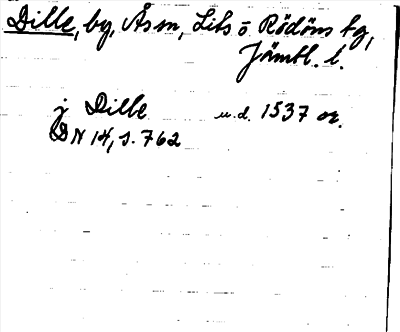 Dille, by, Ås sn, Lits o. Rödöns tg,
Jämtl. l.
j Dille u.d. 1537 or.
DN 14, s. 762